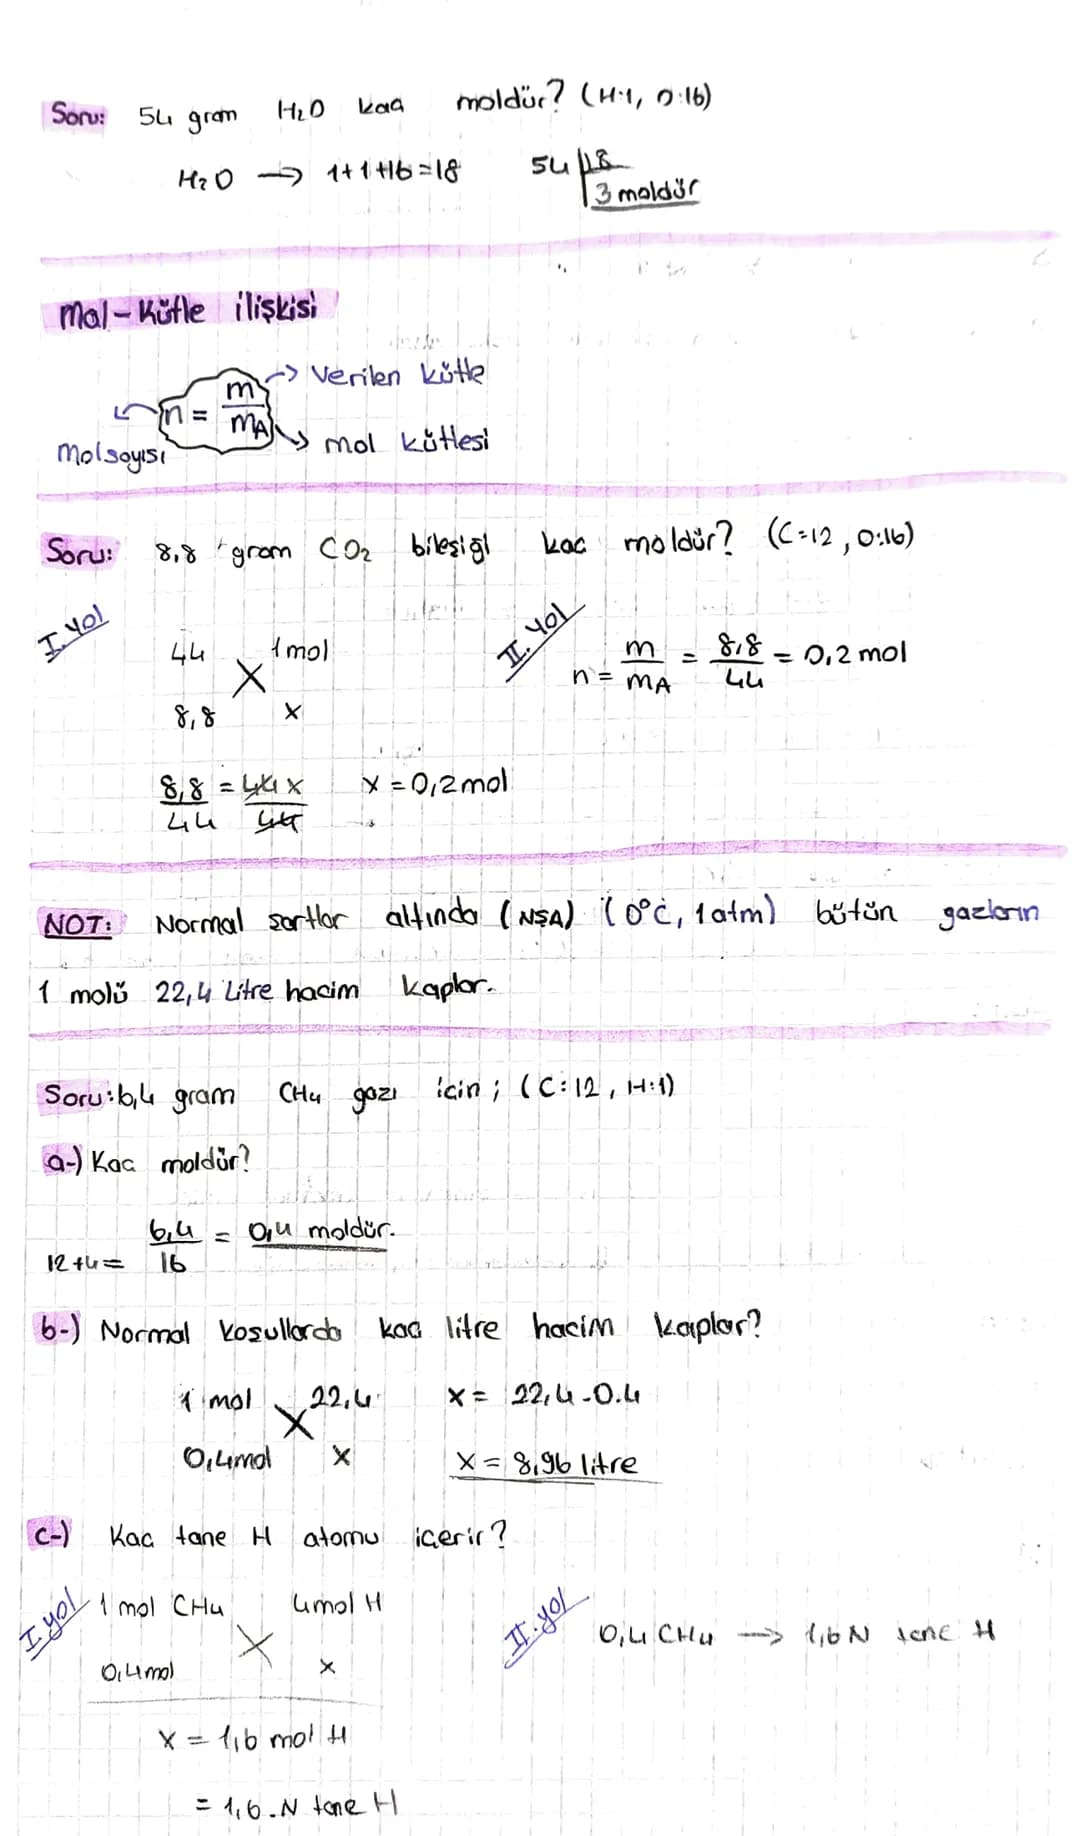 Soru: 54 gram H₂O kaç moldür? (H:1, O:16)
H₂O → 1+1+16=18 54 | 18
3 moldür
Mol-Kütle ilişkisi
n = m/mA
→ Verilen kütle
→ mol kütlesi
Molsayısı
Soru: 8,8 gram CO₂ bileşiği kaç moldür? (C=12, O:16)
I. yol
44 1 mol
8,8 x
8,8/44 = 44x/44 x = 0,2 mol
II. yol
n = m/mA = 8,8/44 = 0,2 mol
NOT: Normal şartlar altında (NŞA) (0°C, 1 atm) bütün gazların
1 molü 22,4 Litre hacim kaplar.
Soru: 6,4 gram CH₄ gazı için; (C:12, H:1)
a-) Kaç moldür?
12+4= 6,4/16 = 0,4 moldür.
b-) Normal koşullarda kaç litre hacim kaplar?
1 mol 22,4 x = 22,4-0.4
0,4mol x x = 8,96 litre
c-) Kaç tane H atomu içerir?
I yol
1 mol CH₄ 4mol H
0,4mol x
x = 1,6 mol H
= 1,6.N tane H
II. yol
0,4 CH₄ → 1,6 N tane H